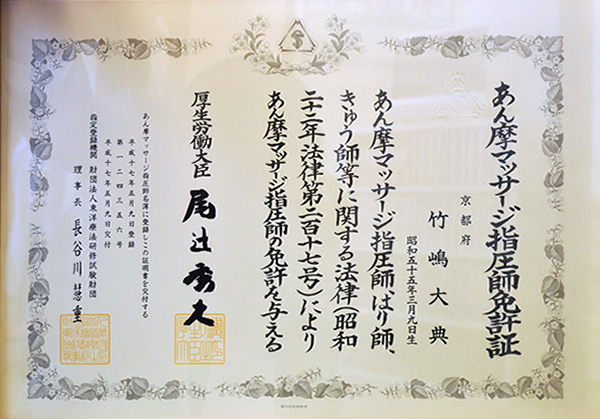 あん摩マッサージ指圧師免許証
京都府
竹嶋大典
昭和五十五年三月九日生
あん摩マッサージ指圧師、はり師、
きゅう師等に関する法律(昭和
二十二年法律第二百十七号)により
あん摩マッサージ指圧師の免許を与える
厚生労働大臣 尾辻秀久
あん摩マッサージ指圧師名簿に登録しこの証明書を交付する
平成十七年五月九日登録
第一二四三五六号
平成十七年五月九日交付
指定登録機関 財団法人東洋療法研修試験財団
理事長 長谷川慧重